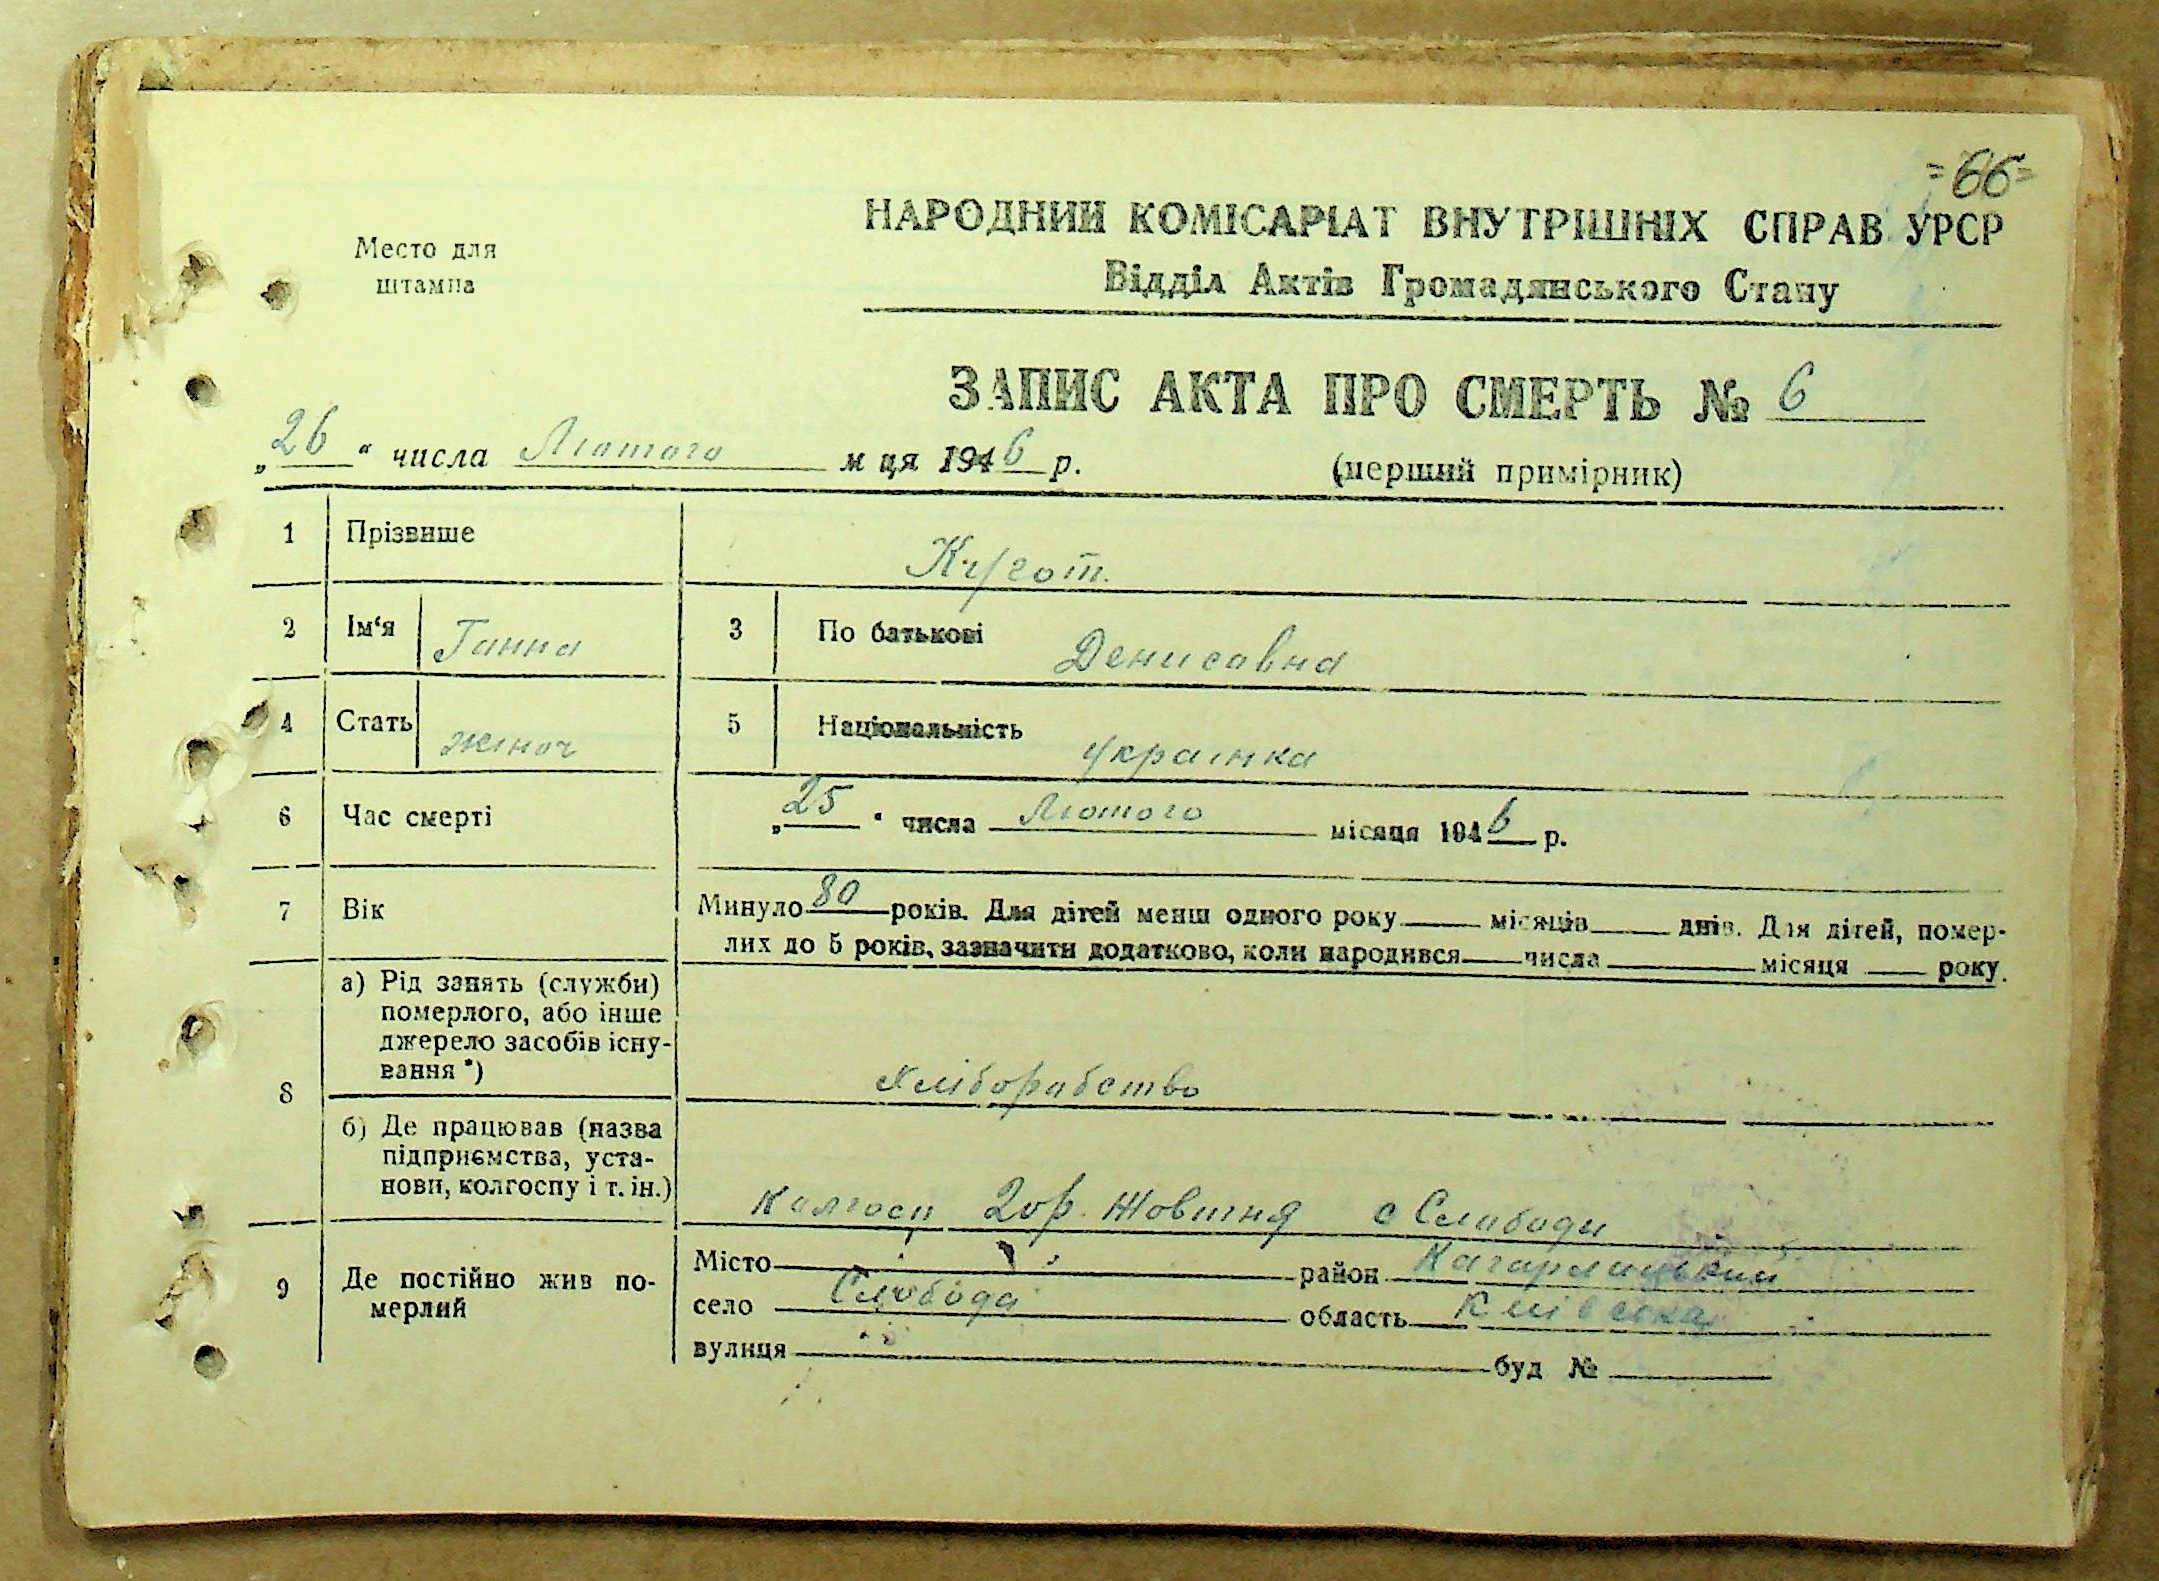 =66=
Место для
штампа
НАРОДНИЙ КОМІСАРІАТ ВНУТРІШНІХ СПРАВ УРСР
Відділ Актів Громадянського Стану
ЗАПИС АКТА ПРО СМЕРТЬ № 6
„26“ числа Лютого м ця 1946 р. (перший примірник)
1 Прізвище
2 Ім‘я Ганна 3 По батькові Денисовна
4 Стать жіноч 5 Національність українка
6 Час смерті „25“ числа Лютого місяця 1946 р.
7 Вік Минуло 80 років. Для дітей менш одного року місяців днів. Для дітей, помер-
лих до 5 років, зазначити додатково, коли народився числа місяця року.
8 а) Рід занять (служби)
померлого, або інше
джерело засобів існу-
вання *) Хліборобство
б) Де працював (назва
підприємства, уста-
нови, колгоспу і т. ін.) Колгосп 2ор. Жовтня с Слободи
9 Де постійно жив по-
мерлий
Місто район Кагарлицький
село Слобода область Київська
вулиця буд №